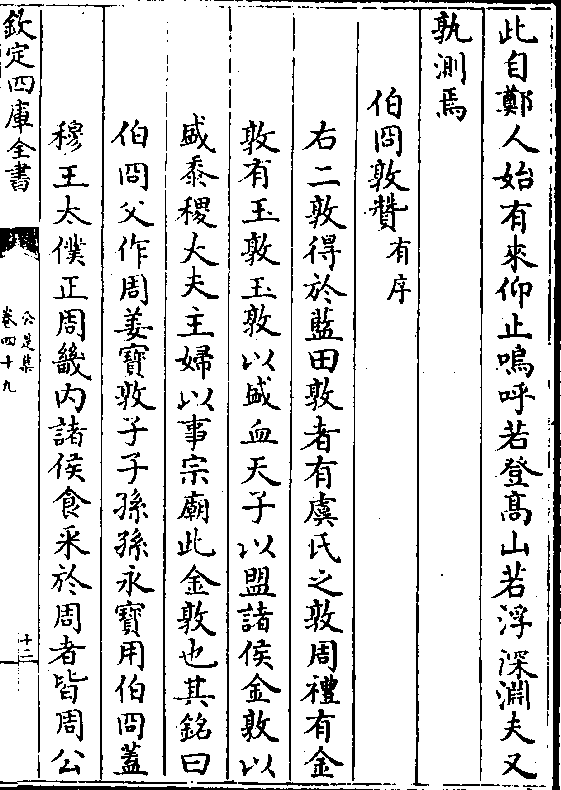 此自鄭人始有來仰止嗚呼若登髙山若浮深淵夫又
孰測焉
伯冏敦贊有序
右二敦得於藍田敦者有虞氏之敦周禮有金
敦有玉敦玉敦以盛血天子以盟諸侯金敦以
盛黍稷大夫主婦以事宗廟此金敦也其銘曰
伯冏父作周姜寶敦子子孫孫永寶用伯冏蓋
穆王太僕正周畿内諸侯食采於周者皆周公
欽定四庫全書
公是集
卷四十九
十二